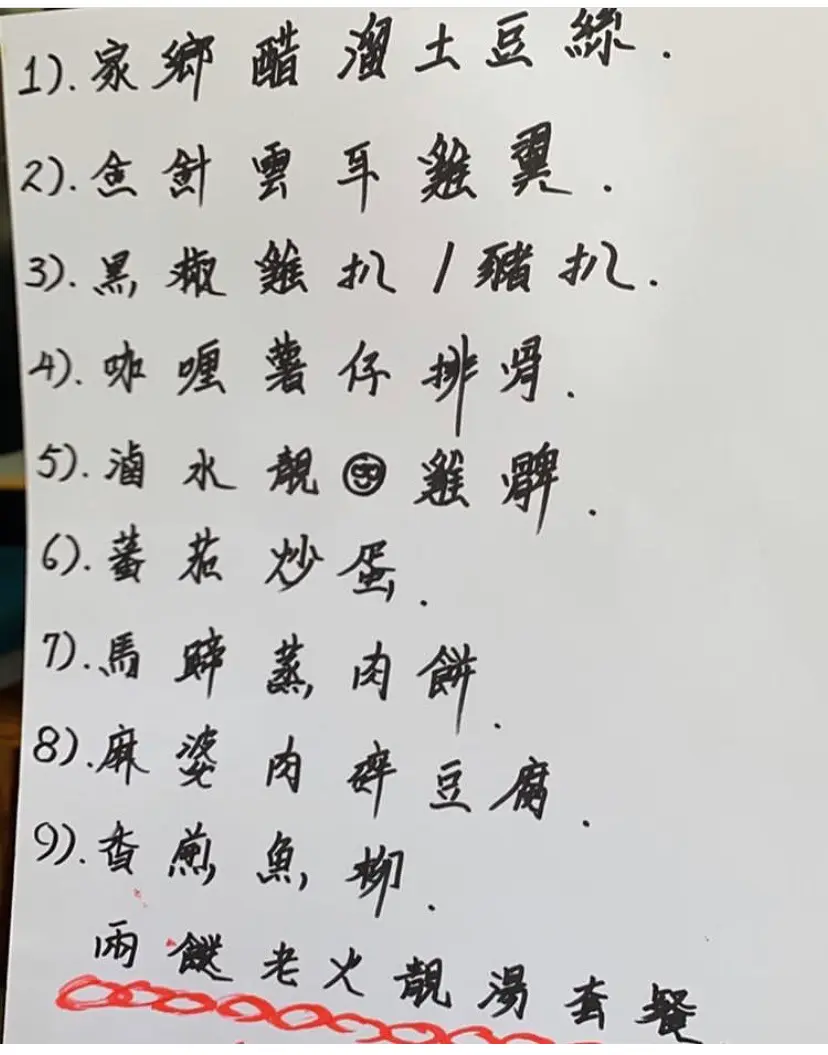 1). 家鄉醋溜土豆絲.
2). 金針雲耳雞翼.
3). 黑椒雞扒/豬扒.
4). 咖喱薯仔排骨.
5). 滷水靚雞髀.
6). 蕃茄炒蛋.
7). 馬蹄蒸肉餅.
8). 麻婆肉碎豆腐.
9). 香煎魚柳.
兩餸老火靚湯套餐